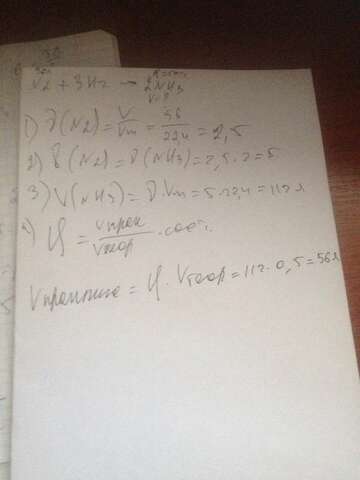 N2 + 3H2 → 2NH3
V=?
1) ν(N2) = V/Vm = 56/22,4 = 2,5
2) ν(N2) = ν(NH3) = 2,5 · 2 = 5
3) V(NH3) = ν · Vm = 5 · 22,4 = 112 л
4) φ = Vпрак/Vтеор · 100%
Vпрактич = φ · Vтеор = 112 · 0,5 = 56л